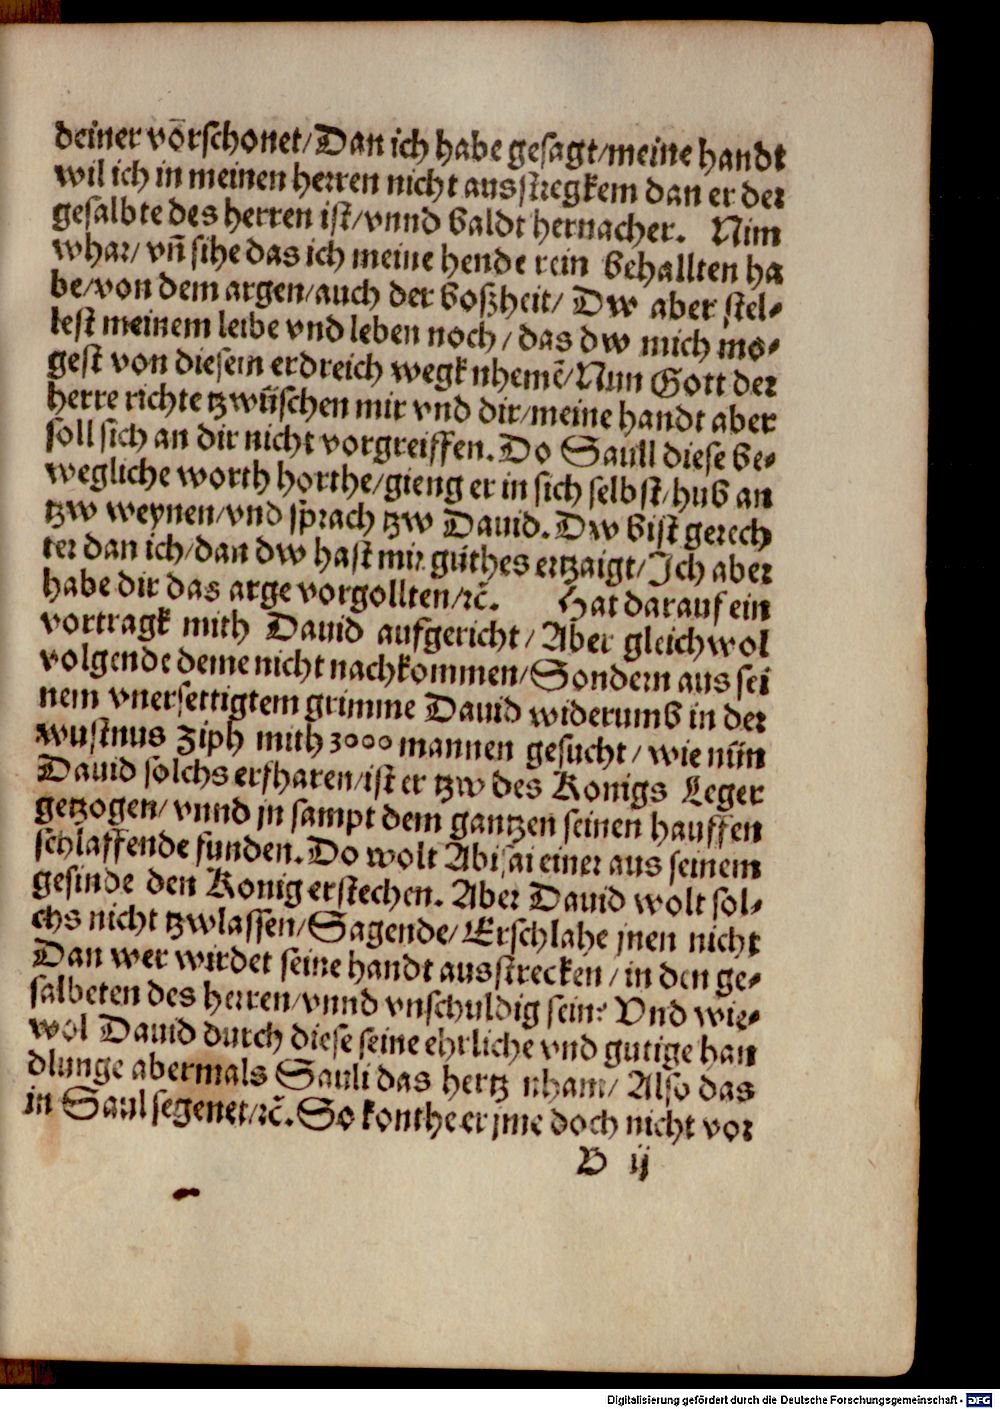 deiner vorschonet/Dan ich habe gesagt/meine handt
wil ich in meinen herren nicht ausstregkem dan er der
gesalbte des herren ist/vnnd baldt hernacher. Nim
whar/vñ sihe das ich meine hende rein behallten ha
be/von dem argen/auch der boßheit/ Dw aber stel-
lest meinem leibe vnd leben noch/das dw mich mo-
gest von diesem erdreich wegk nhemẽ/Nun Gott der
herre richte tzwuschen mir vnd dir/meine handt aber
soll sich an dir nicht vorgreiffen. Do Saull diese be-
wegliche worth horthe/gieng er in sich selbst/hub an
tzw weynen/vnd sprach tzw Dauid. Dw bist gerech
ter dan ich/dan dw hast mir guthes ertzaigt/Ich aber
habe dir das arge vorgollten/ꝛc̃. Hat darauf ein
vortragk mith Dauid aufgericht/ Aber gleichwol
volgende deme nicht nachkommen/Sondern aus sei
nem vnersettigtem grimme Dauid widerumb in der
wustnus Ziph mith 3000 mannen gesucht/wie nun
Dauid solchs erfharen/ist er tzw des Konigs Leger
getzogen/vnnd jn sampt dem gantzen seinen hauffen
schlaffende funden. Do wolt Abisai einer aus seinem
gesinde den Konig erstechen. Aber Dauid wolt sol-
chs nicht tzwlassen/Sagende/Erschlahe jnen nicht
Dan wer wirdet seine handt ausstrecken/in den ge-
salbeten des herren/vnnd vnschuldig sein? Vnd wie-
wol Dauid durch diese seine ehrliche vnd gutige han
dlunge abermals Sauli das hertz nham/ Also das
in Saul segenet/ꝛc̃. So konthe er jme doch nicht vor
B ij
Digitalisierung gefördert durch die Deutsche Forschungsgemeinschaft - DFG